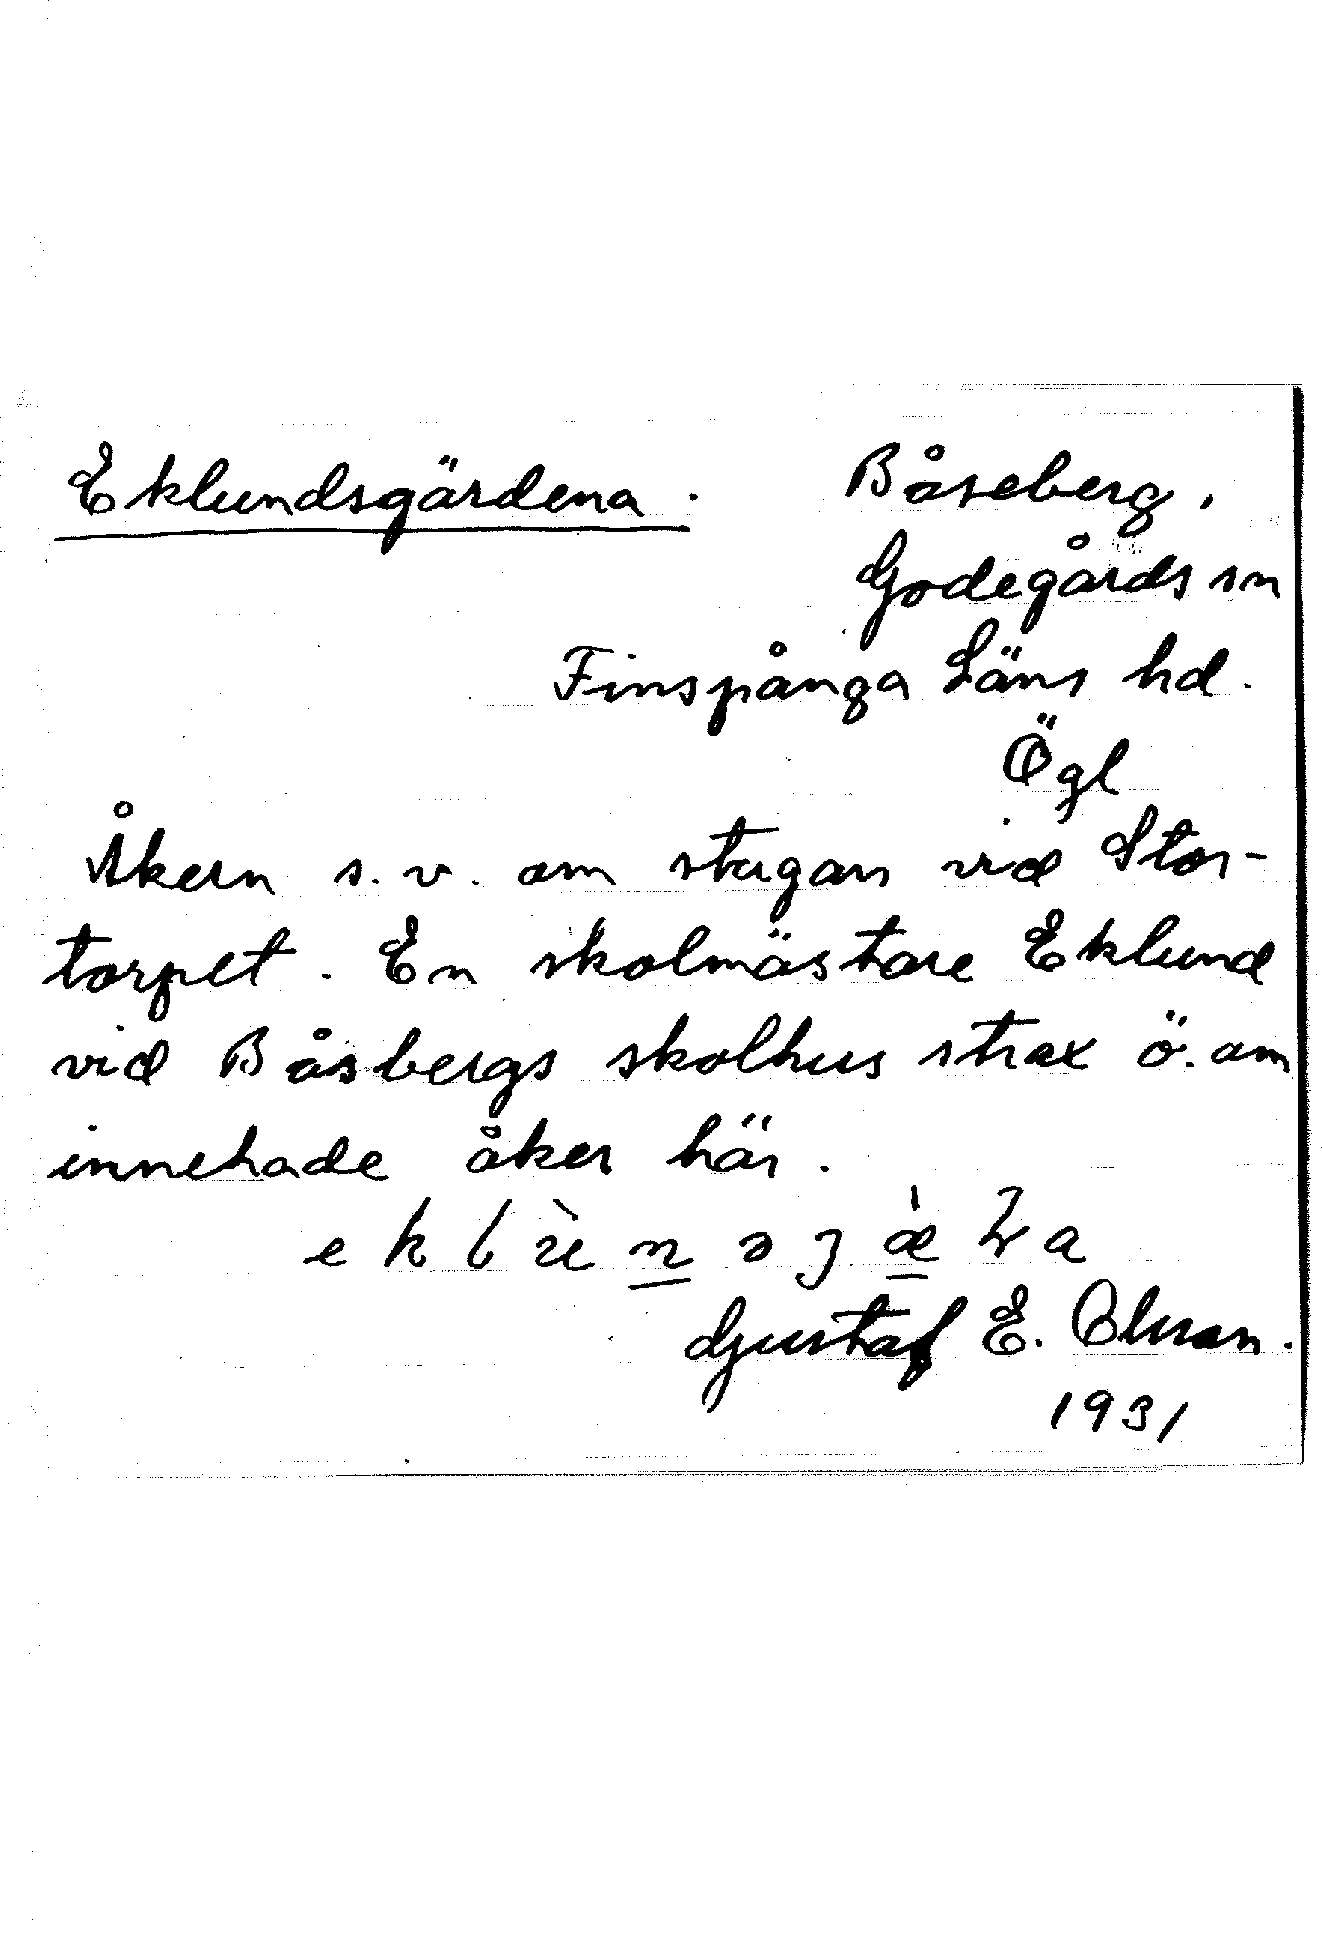 Eklundsgärdena. Båseberg,
Godegårds sn
Finspånga Läns hd.
Ögl
Åkern s.v. om stugan vid Stor-
torpet. En skolmästare Eklund
vid Båsbergs skolhus strax ö. om
innehade åker här.
Gustaf E. Olsson.
1931